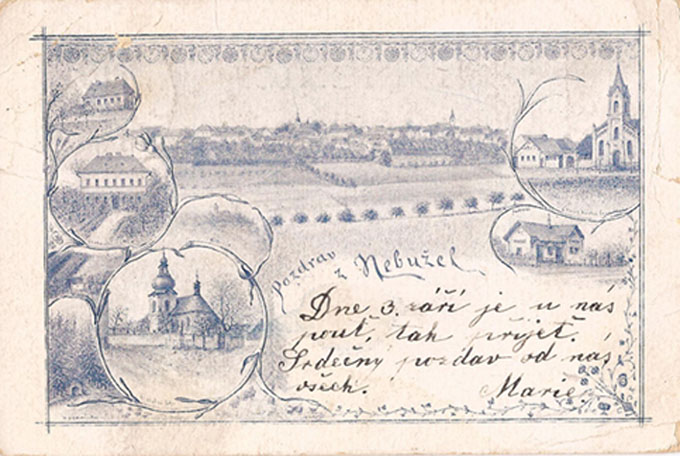 Pozdrav
z Nebužel
Dne 3. září je u nás
pouť, tak přijeť.
Srdečný pozdav od nás
všech. Marie.